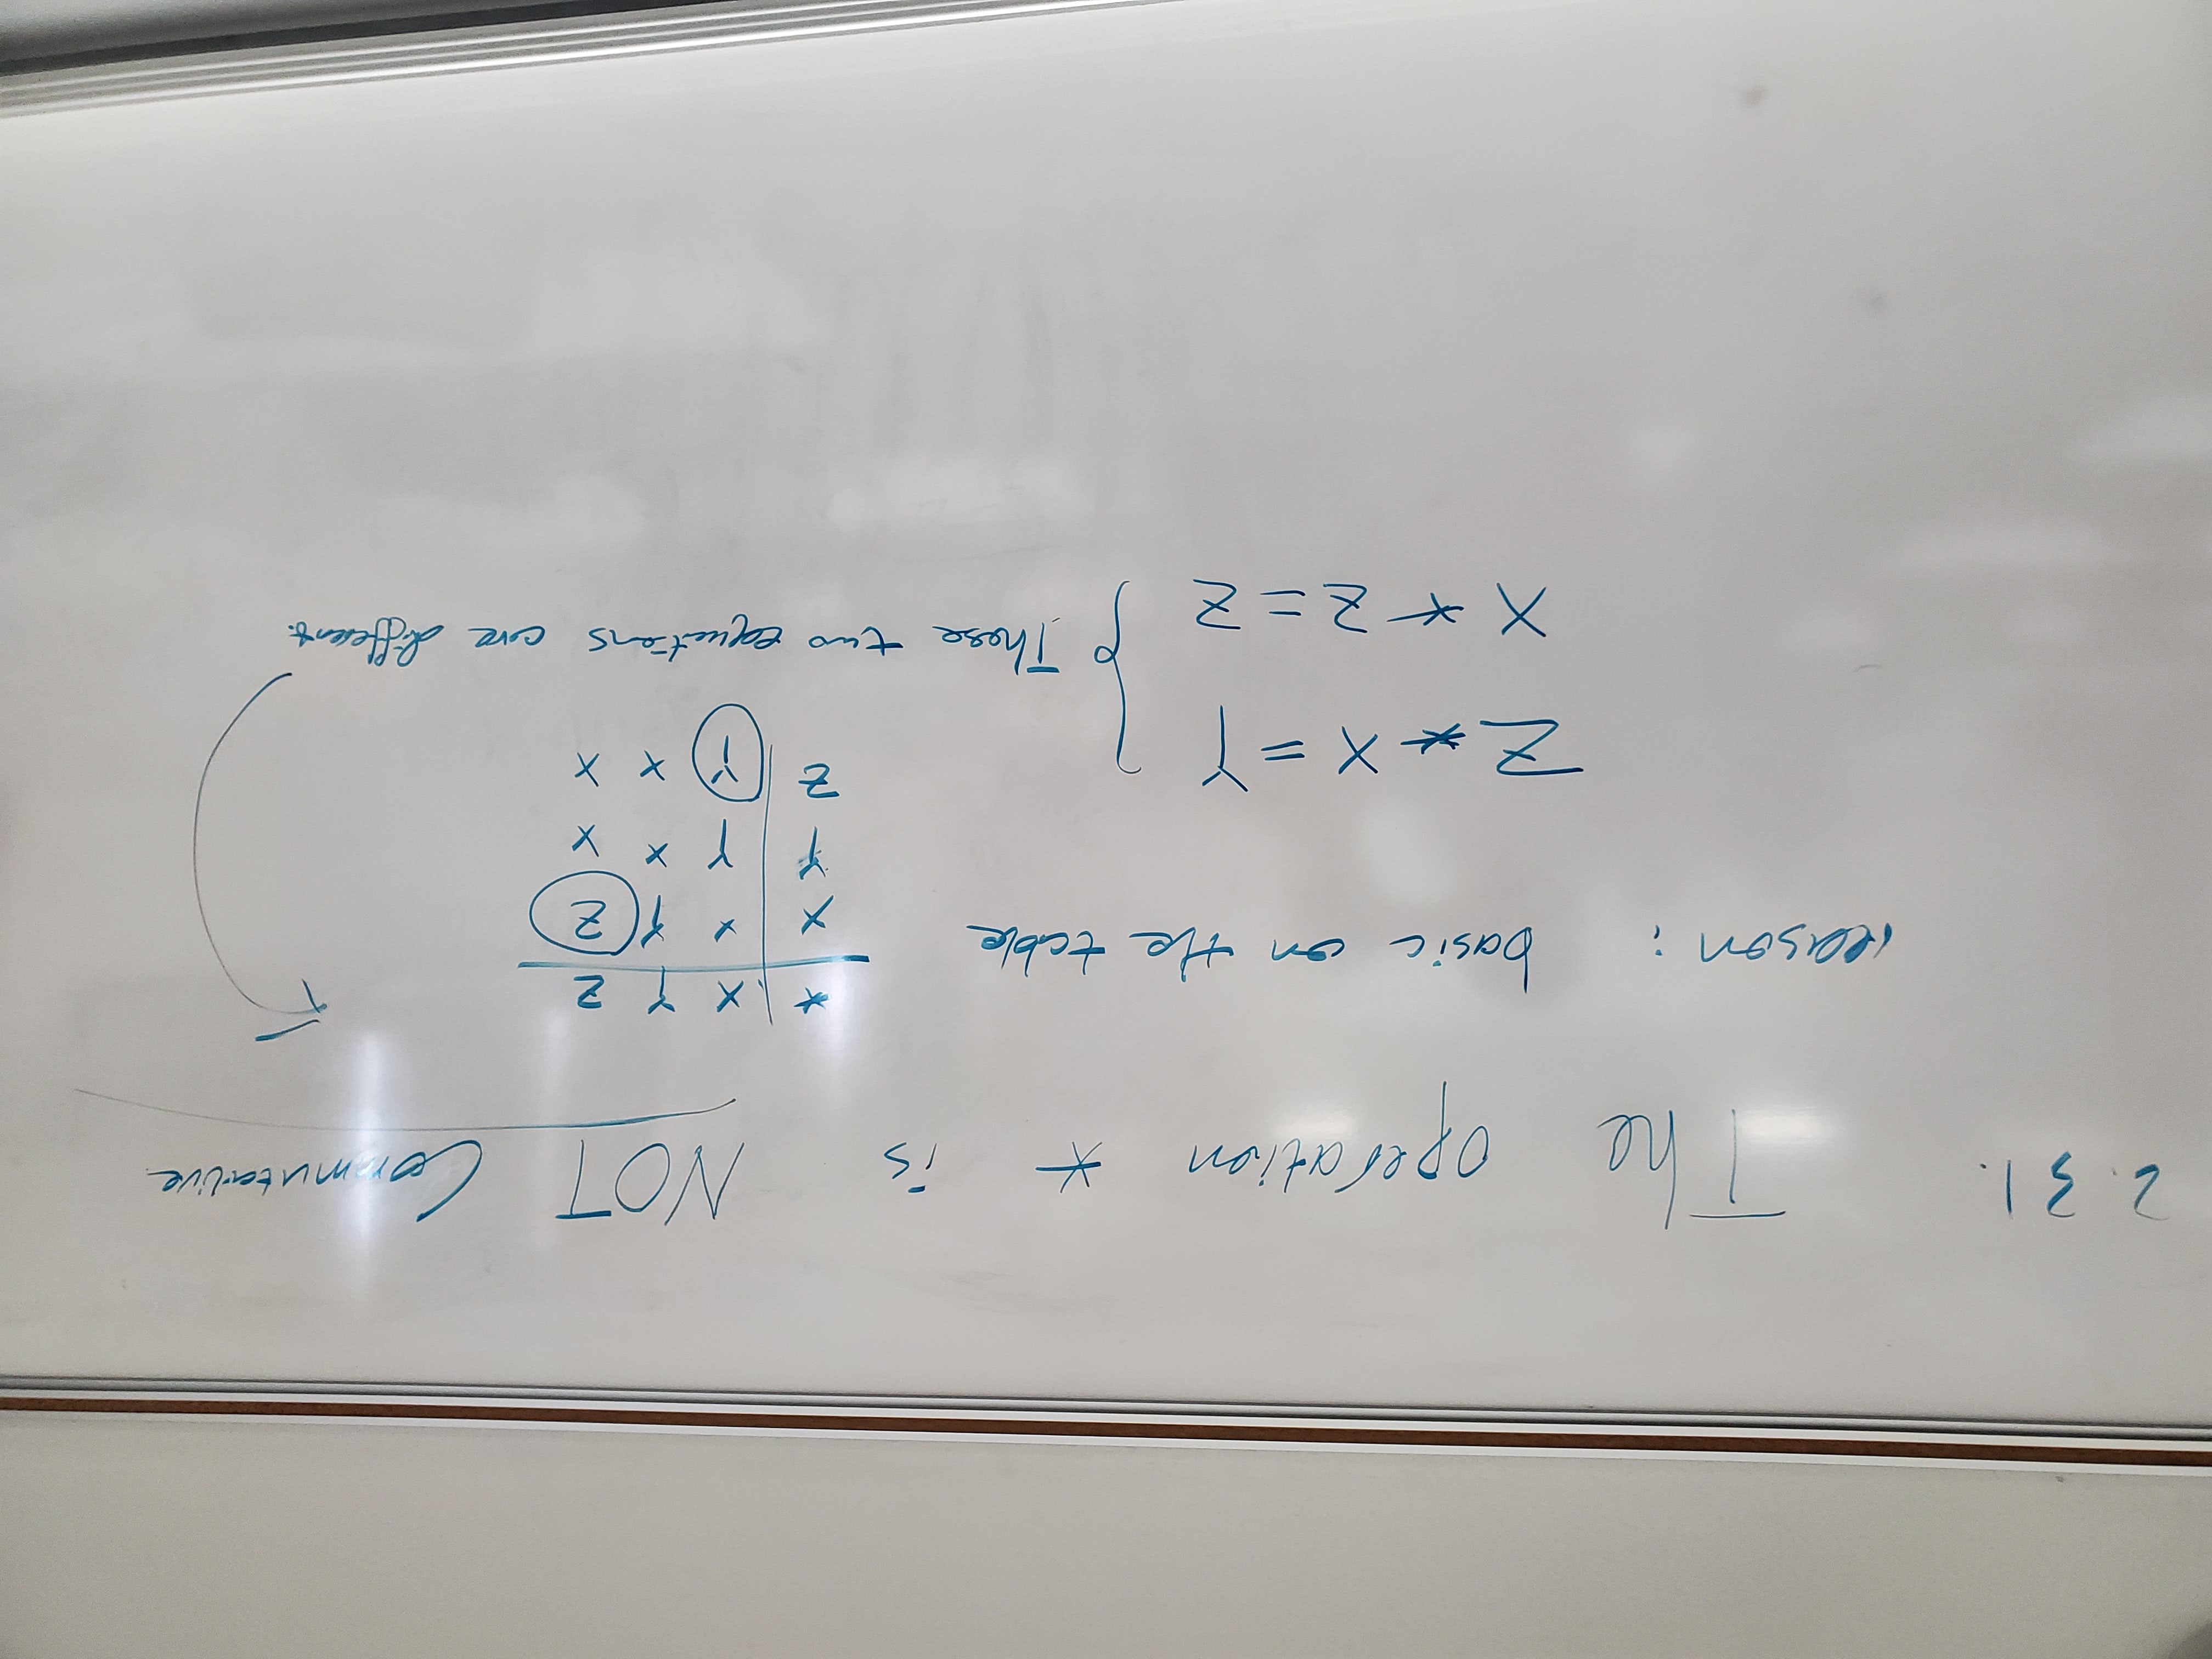 2.31. The operation * is NOT Commutative
reason: basic on the table
* X Y Z
X X Y Z
Y Y X X
Z Y X X
Z * X = Y
X * Z = Z
These two equations are different.